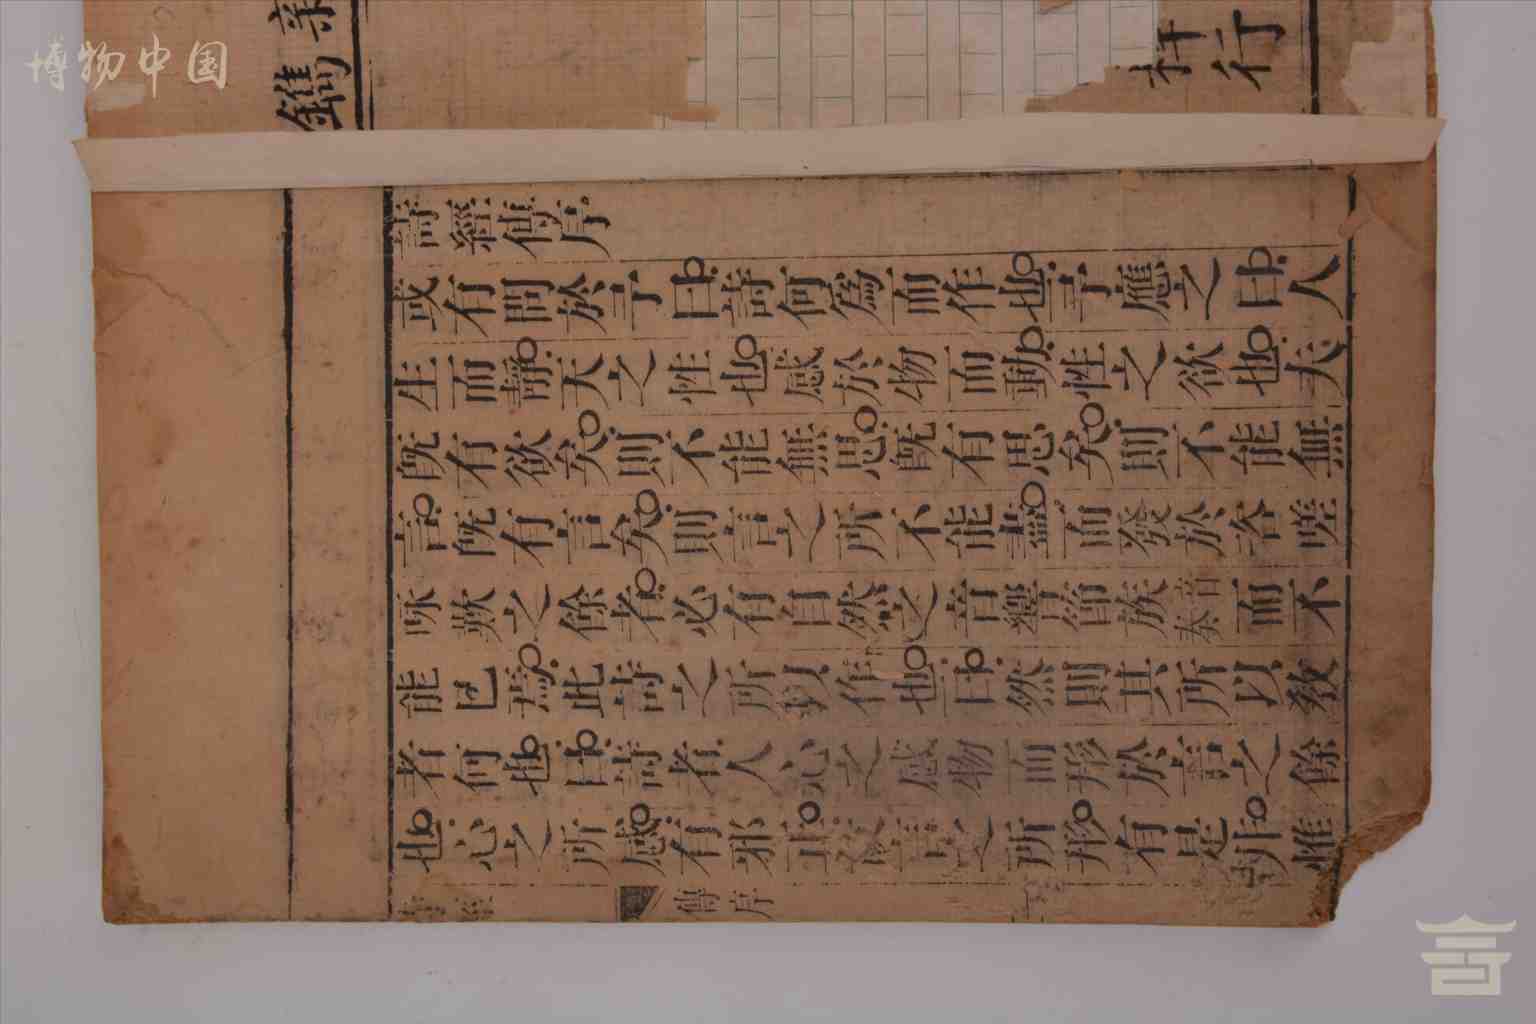 博物中国
梓行
鐫
詩經傳序
或有問於予曰詩何爲而作也予應之曰人
生而靜天之性也感於物而動性之欲也夫
旣有欲矣則不能無思旣有思矣則不能無
言旣有言矣則言之所不能盡而發於咨嗟
咏歎之餘者必有自然之音響節族音奏而不
能已焉此詩之所以作也曰然則其所以敎
者何也曰詩者人心之感物而形於言之餘
也心之所感有邪正故言之所形有是非惟
傳序